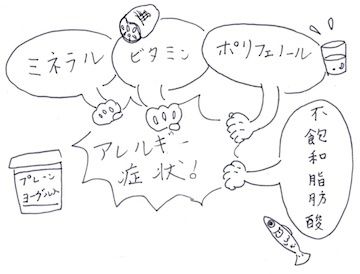 ミネラル
ビタミン
ポリフェノール
アレルギー
症状!
不飽和脂肪酸
プレーン
ヨーグルト